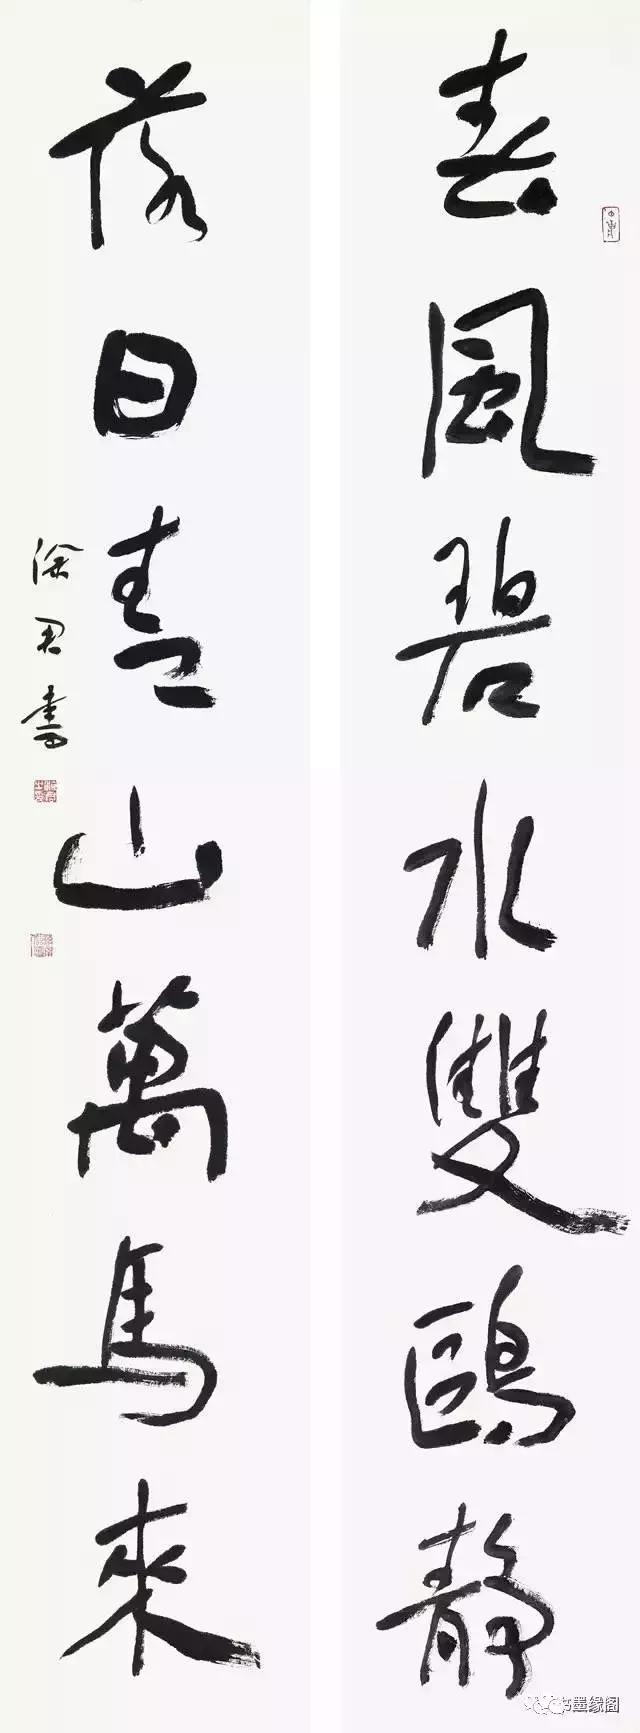 春風碧水雙鷗靜
落日青山萬馬來
徐君書
书墨缘阁